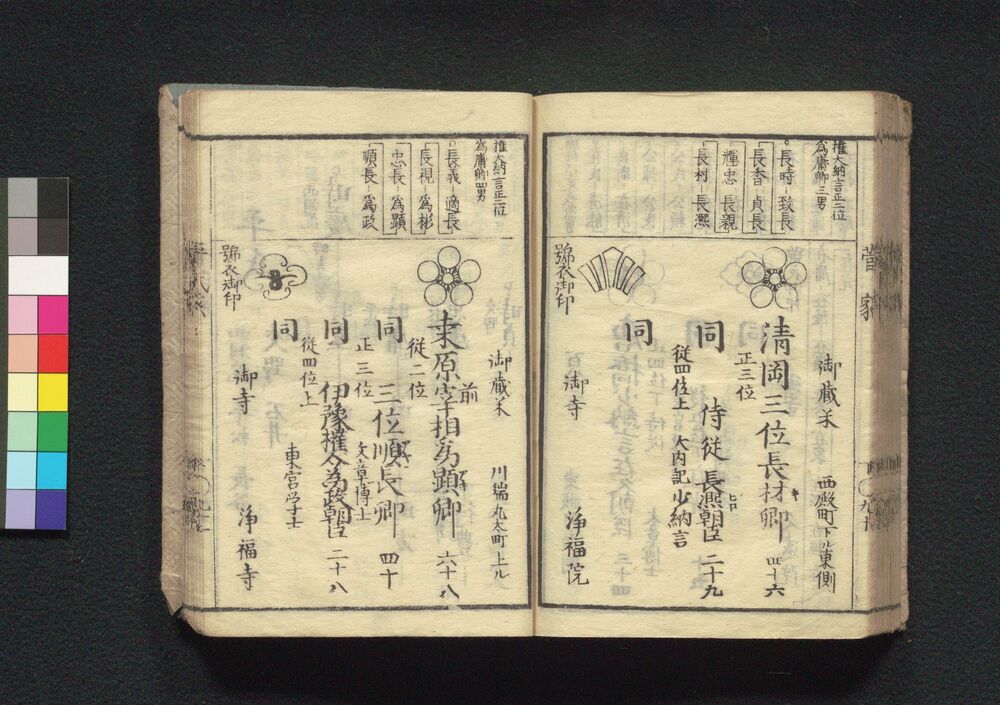 権大納言正二位
為庸卿三男
長時 致長
長香 貞長
輝忠 長親
長村 長凞
菅家
御蔵米
西殿町下ル東側
清岡三位長材卿 四十六
正三位
同 侍従長凞朝臣 二十九
従四位上
大内記少納言
同
號衣御印
御寺
浄福院
権大納言正二位
為庸卿四男
長義 適長
長視 為彬
忠長 為顕
順長 為政
御蔵米
川端丸太町上ル
桒原前宰相為顕卿 六十八
従二位
同 三位順長卿 四十
正三位
文章博士
同 伊豫権介為政朝臣 二十八
従四位上
東宮学士
同
號衣御印
御寺
浄福寺